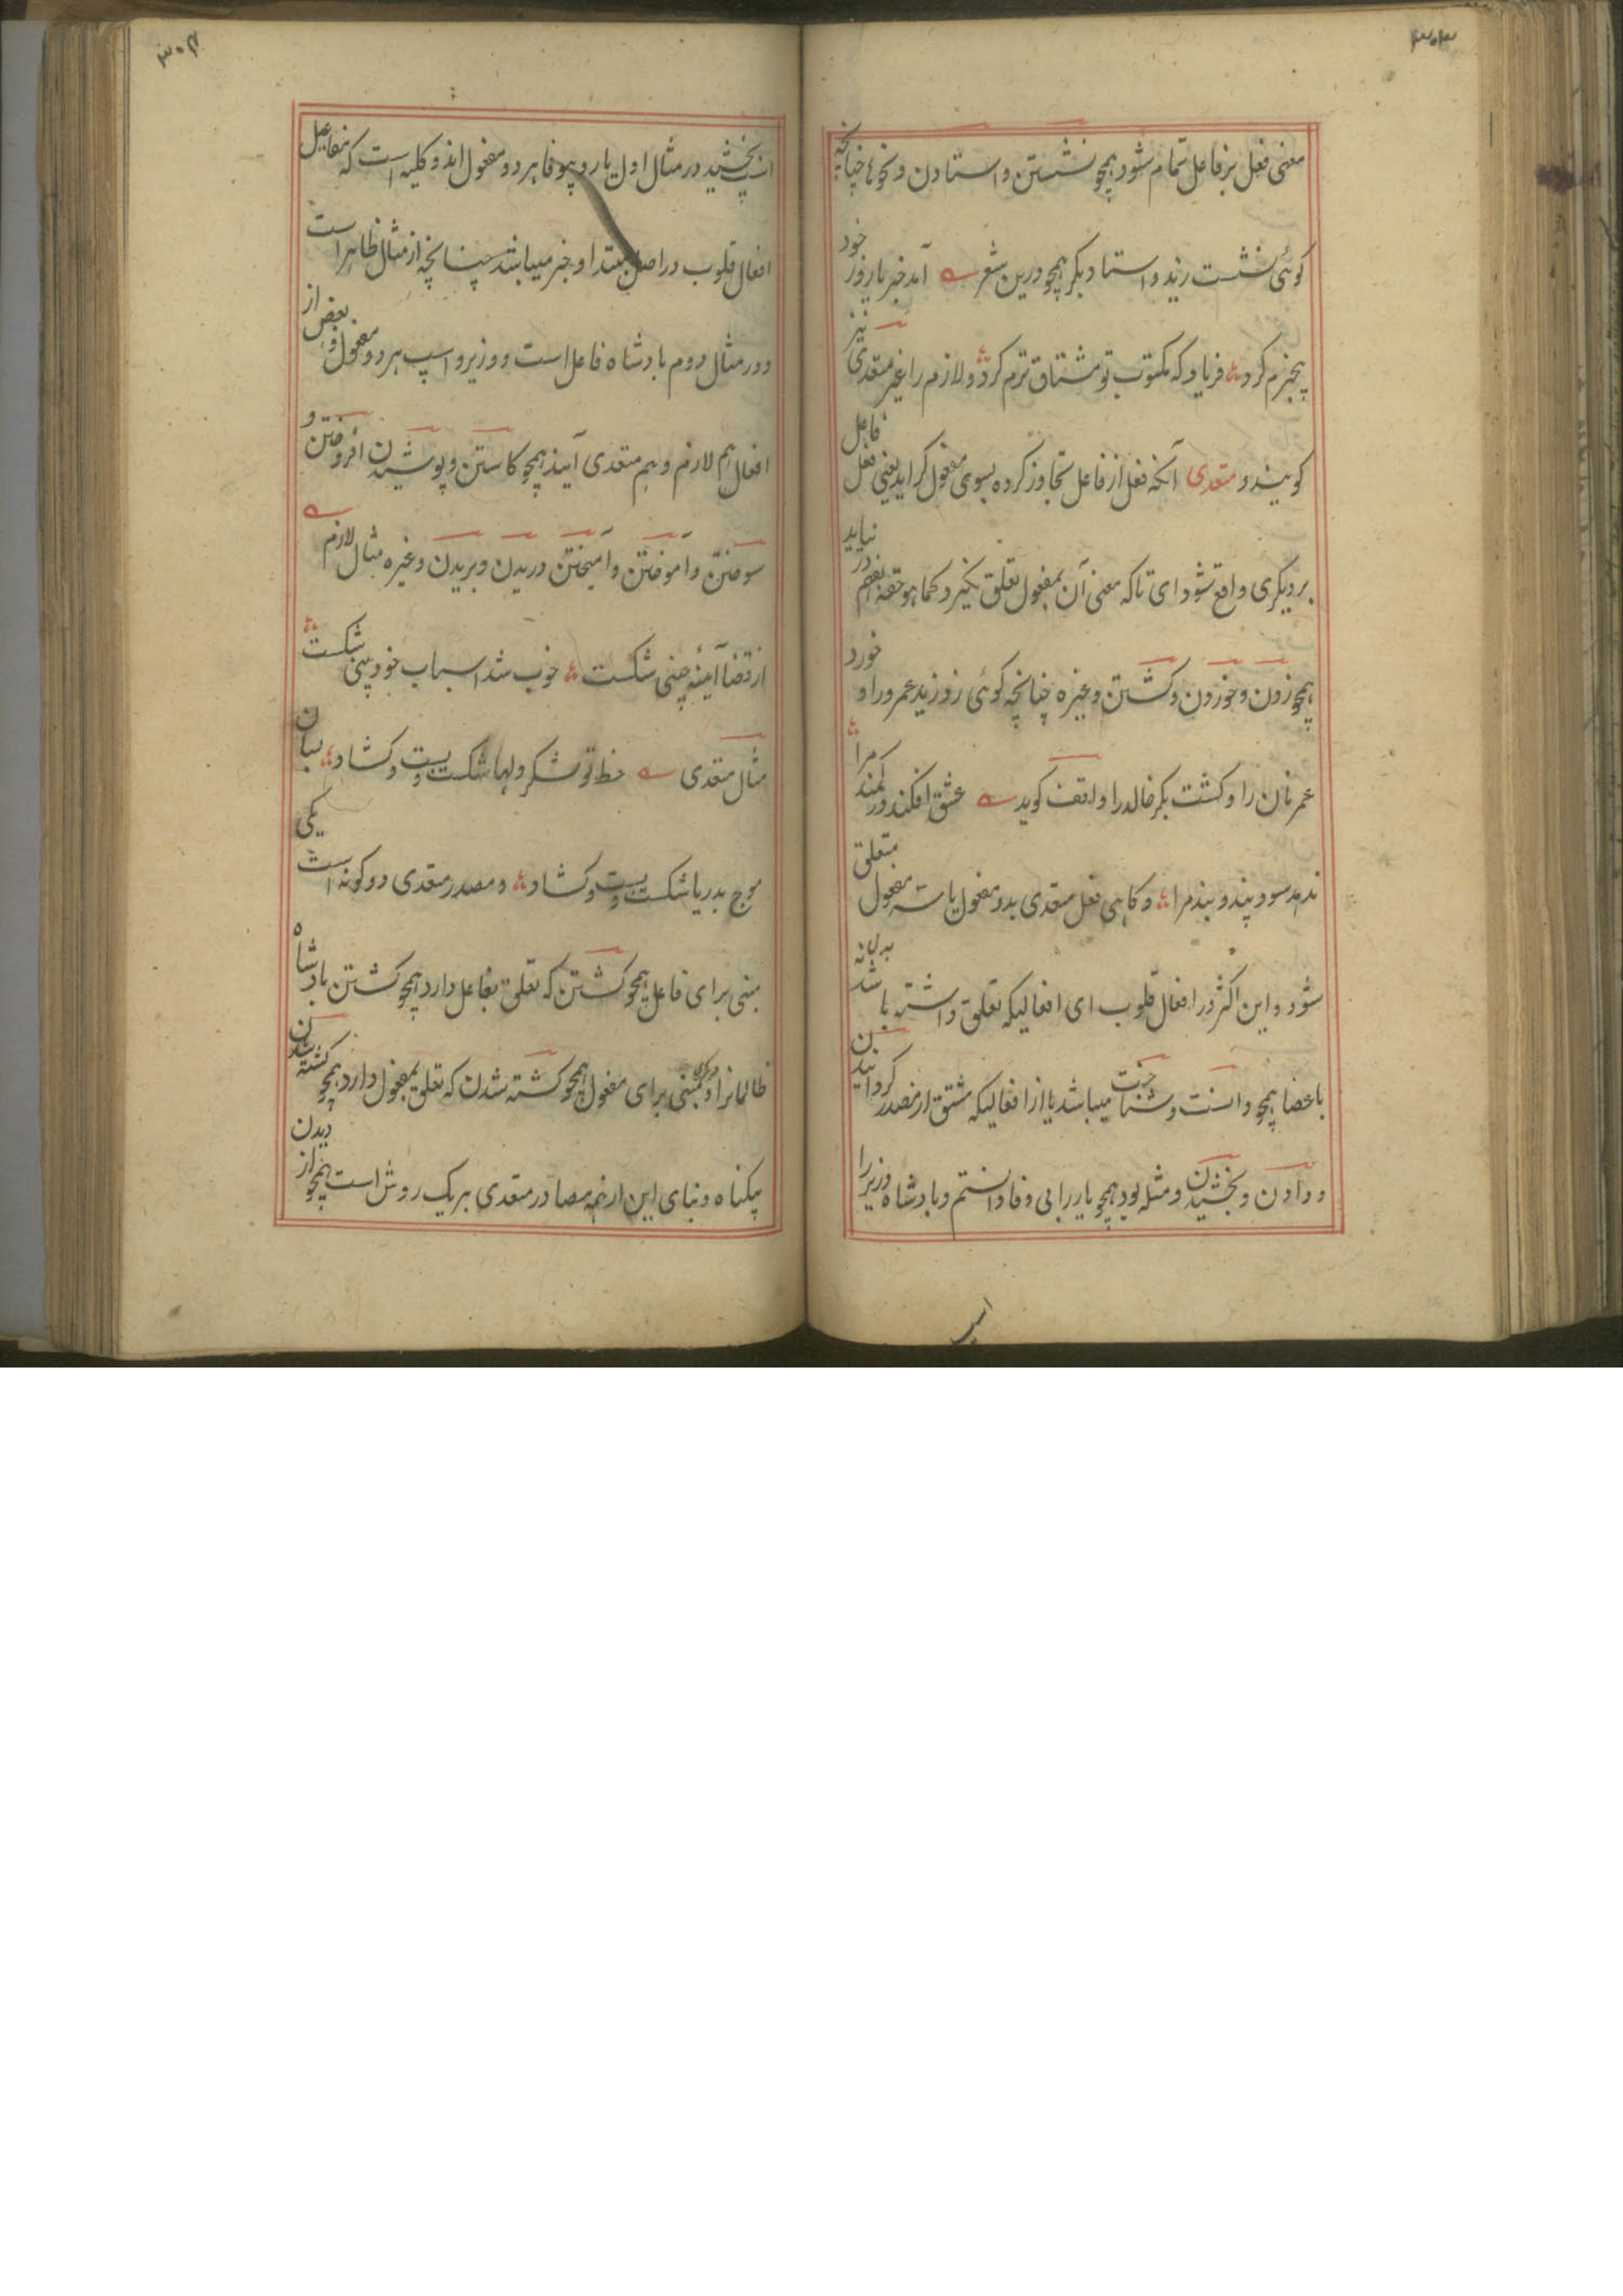 ۳۰۳
معنی فعل بر فاعل تمام شود همچو نشستن و استادن و نحوها چنانچه
گوئی نشست زید و استاد بکر همچو درین شعر آمد خبر یار ز خود
بیخبرم کرد فریاد که مکتوب تو مشتاق ترم کرد و لازم را غیر متعدی نیز
گویند و متعدی آنکه فعل از فاعل تجاوز کرده بسوی مفعول گراید یعنی فعل فاعل
بر دیگری واقع شود ای تا که معنی آن بمفعول تعلق نگیرد کما هو حقه در فهم نیاید
همچو زدن و خوردن و کشتن و غیره چنانچه گوئی زد زید عمرو را و خورد
عمر نان را و کشت بکر خالد را واقف گوید عشق افکند در کمند مرا
ندهد سود پند و بند مرا و گاهی فعل متعدی بدو مفعول یا سه مفعول متعلق
شود و این اکثر در افعال قلوب ای افعالیکه تعلق داشته باشد بدل نه
باعضا همچو دانست و شناخت میباشد یا از افعالیکه مشتق از مصدر گردانیدن
و دادن و بخشیدن و مثله بود همچو یار را بی وفا دانستم و بادشاه وزیر را
اسپ
۳۰۴
اسپ بخشید در مثال اول یار و بیوفا هر دو مفعول اند و کلیه است که مفاعیل
افعال قلوب در اصل مبتدا و خبر میباشد چنانچه از مثال ظاهر است
و در مثال دوم بادشاه فاعل است و وزیر و اسپ هر دو مفعول و بعض از
افعال هم لازم و هم متعدی آیند همچو کاستن و پوشیدن افروختن و
سوختن و آموختن و آمیختن دریدن و بریدن و غیره مثال لازم
از قضا آئینه چینی شکست خوب شد اسباب خود بینی شکست
مثال متعدی خط تو شکر و لبها شکست و بست و کشاد بیان
موج بدریا شکست و بست و کشاد و مصدر متعدی دو گونه است یکی
مبنی برای فاعل همچو کشتن که تعلق بفاعل دارد همچو کشتن بادشاه
ظالمانرا و دیگری مبنی برای مفعول همچو کشته شدن که تعلق بمفعول دارد همچو کشته شدن
بیگناه و بنای این ازینمه مصادر متعدی بر یک روش است همچو از دیدن